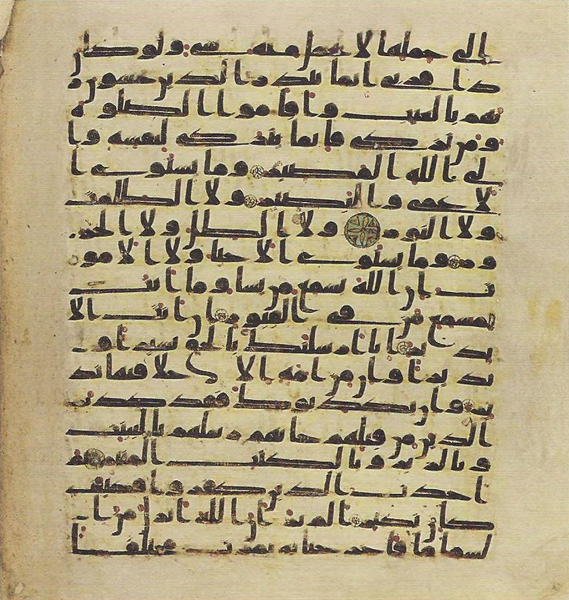 الى حملها لا يحمل منه شىء ولو كان
ذا قربى انما تنذر الذين يخشون ر
بهم بالغيب واقاموا الصلوة
ومن تزكى فانما يتزكى لنفسه وا
لى الله المصير وما يستوى ا
لاعمى والبصير ولا الظلمت
ولا النور ولا الظل ولا الحر
ور وما يستوى الاحيا ولا الامو
ت ان الله يسمع من يشا وما انت
بمسمع من فى القبور ان انت الا
نذير انا ارسلنك بالحق بشيرا و
نذيرا وان من امة الا خلا فيها نذ
ير وان يكذبوك فقد كذب
الذين من قبلهم جاتهم رسلهم بالبينت
وبالزبر وبالكتب المنير ثم
اخذت الذين كفروا فكيف
كان نكير الم تر ان الله انزل من ا
لسما ما فاخرجنا به ثمرت مختلفا